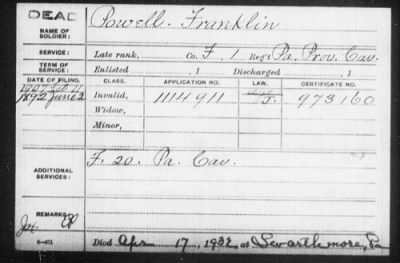 DEAD
NAME OF SOLDIER: Powell. Franklin
SERVICE: Late rank, Co. F, 1 Reg't Pa. Prov. Cav.
TERM OF SERVICE: Enlisted , 1 Discharged , 1
DATE OF FILING. CLASS. APPLICATION NO. LAW. CERTIFICATE NO.
1892 June 2 Invalid, 1114911 973160
Widow,
Minor,
ADDITIONAL SERVICES: F. 20. Pa. Cav.
REMARKS:
Died Apr 17, 1932 at Swarthmore, Pa